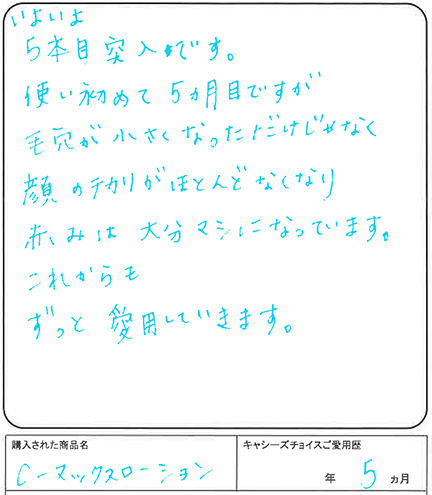 いよいよ
5本目突入です。
使い初めて5ヵ月目ですが
毛穴が小さくなっただけじゃなく
顔のテカリがほとんどなくなり
赤みは大分マシになっています。
これからも
ずっと愛用していきます。
購入された商品名
キャシーズチョイスご愛用歴
C-マックスローション
年 5 ヵ月